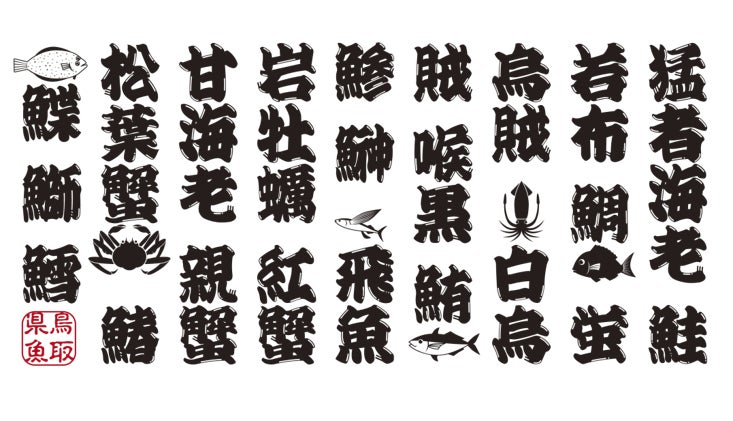 猛者海老 鮭
若布 鯛 蛍
烏賊 白烏
賊 喉黒 鮪
鯵 鰰 飛魚
岩牡蠣 紅蟹
甘海老 親蟹
松葉蟹 鰆
鰈 鰤 鱈
鳥取
県魚